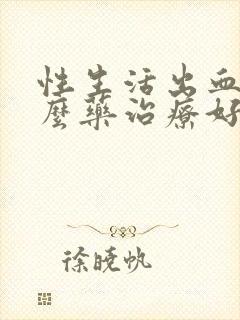 性生活出血
麼藥治療好
徐曉帆